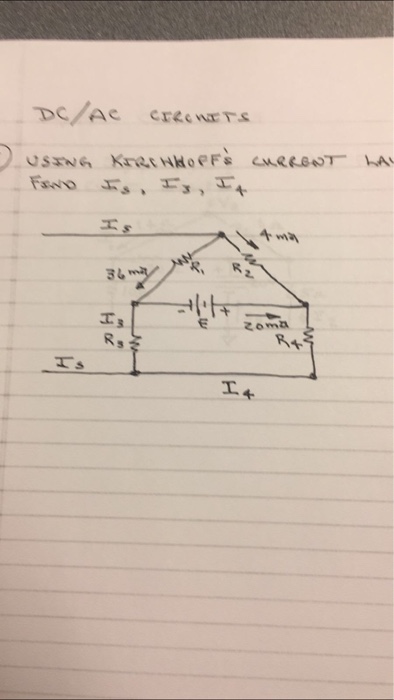 DC/AC CIRCUITS
USING KIRCHHOFF'S CURRENT LAW
FIND Is, I3, I4
Is
4 mA
36 mA R1 R2
- + 
I3 E 20mA
R3 R4
Is
I4